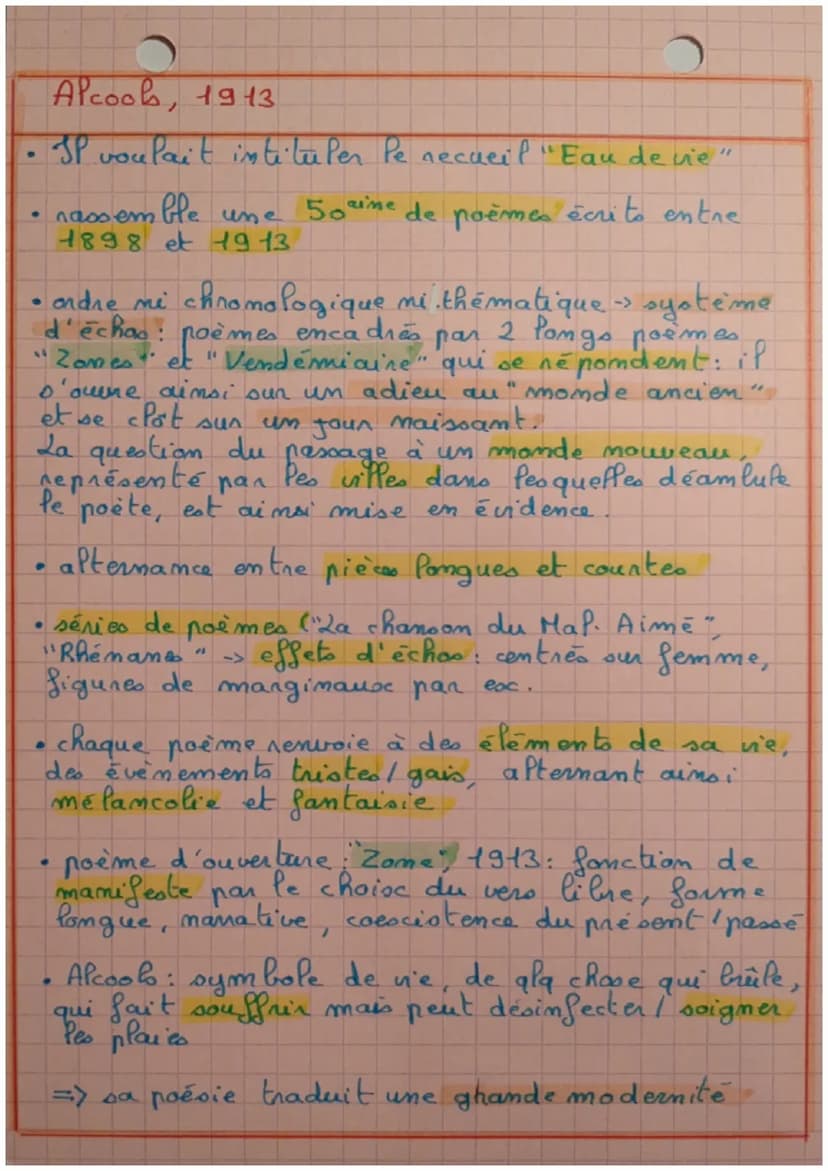 Alcools, 1913
• Il voulait intituler le recueil "Eau de vie"
• rassemble une 50aine de poèmes écrits entre
1898 et 1913
• ordre ni chronologique ni thématique -> système
d'échos : poèmes encadrés par 2 longs poèmes
"Zones" et "Vendémiaire" qui se répondent : il
s'ouvre ainsi sur un adieu au "monde ancien"
et se clôt sur un jour naissant.
La question du passage à un monde nouveau,
représenté par les villes dans lesquelles déambule
le poète, est ainsi mise en évidence.
• alternance entre pièces longues et courtes
• séries de poèmes ("La chanson du Mal. Aimé",
"Rhénanes" -> effets d'échos : centrés sur femme,
figures de marginaux par ex.
• chaque poème renvoie à des éléments de sa vie,
des évènements tristes / gais, alternant ainsi
mélancolie et fantaisie
• poème d'ouverture : "Zone", 1913 : fonction de
manifeste par le choix du vers libre, forme
longue, narrative, coexistence du présent / passé
• Alcools : symbole de vie, de qlq chose qui brûle,
qui fait souffrir mais peut désinfecter / soigner
les plaies
=> sa poésie traduit une ghande modernité